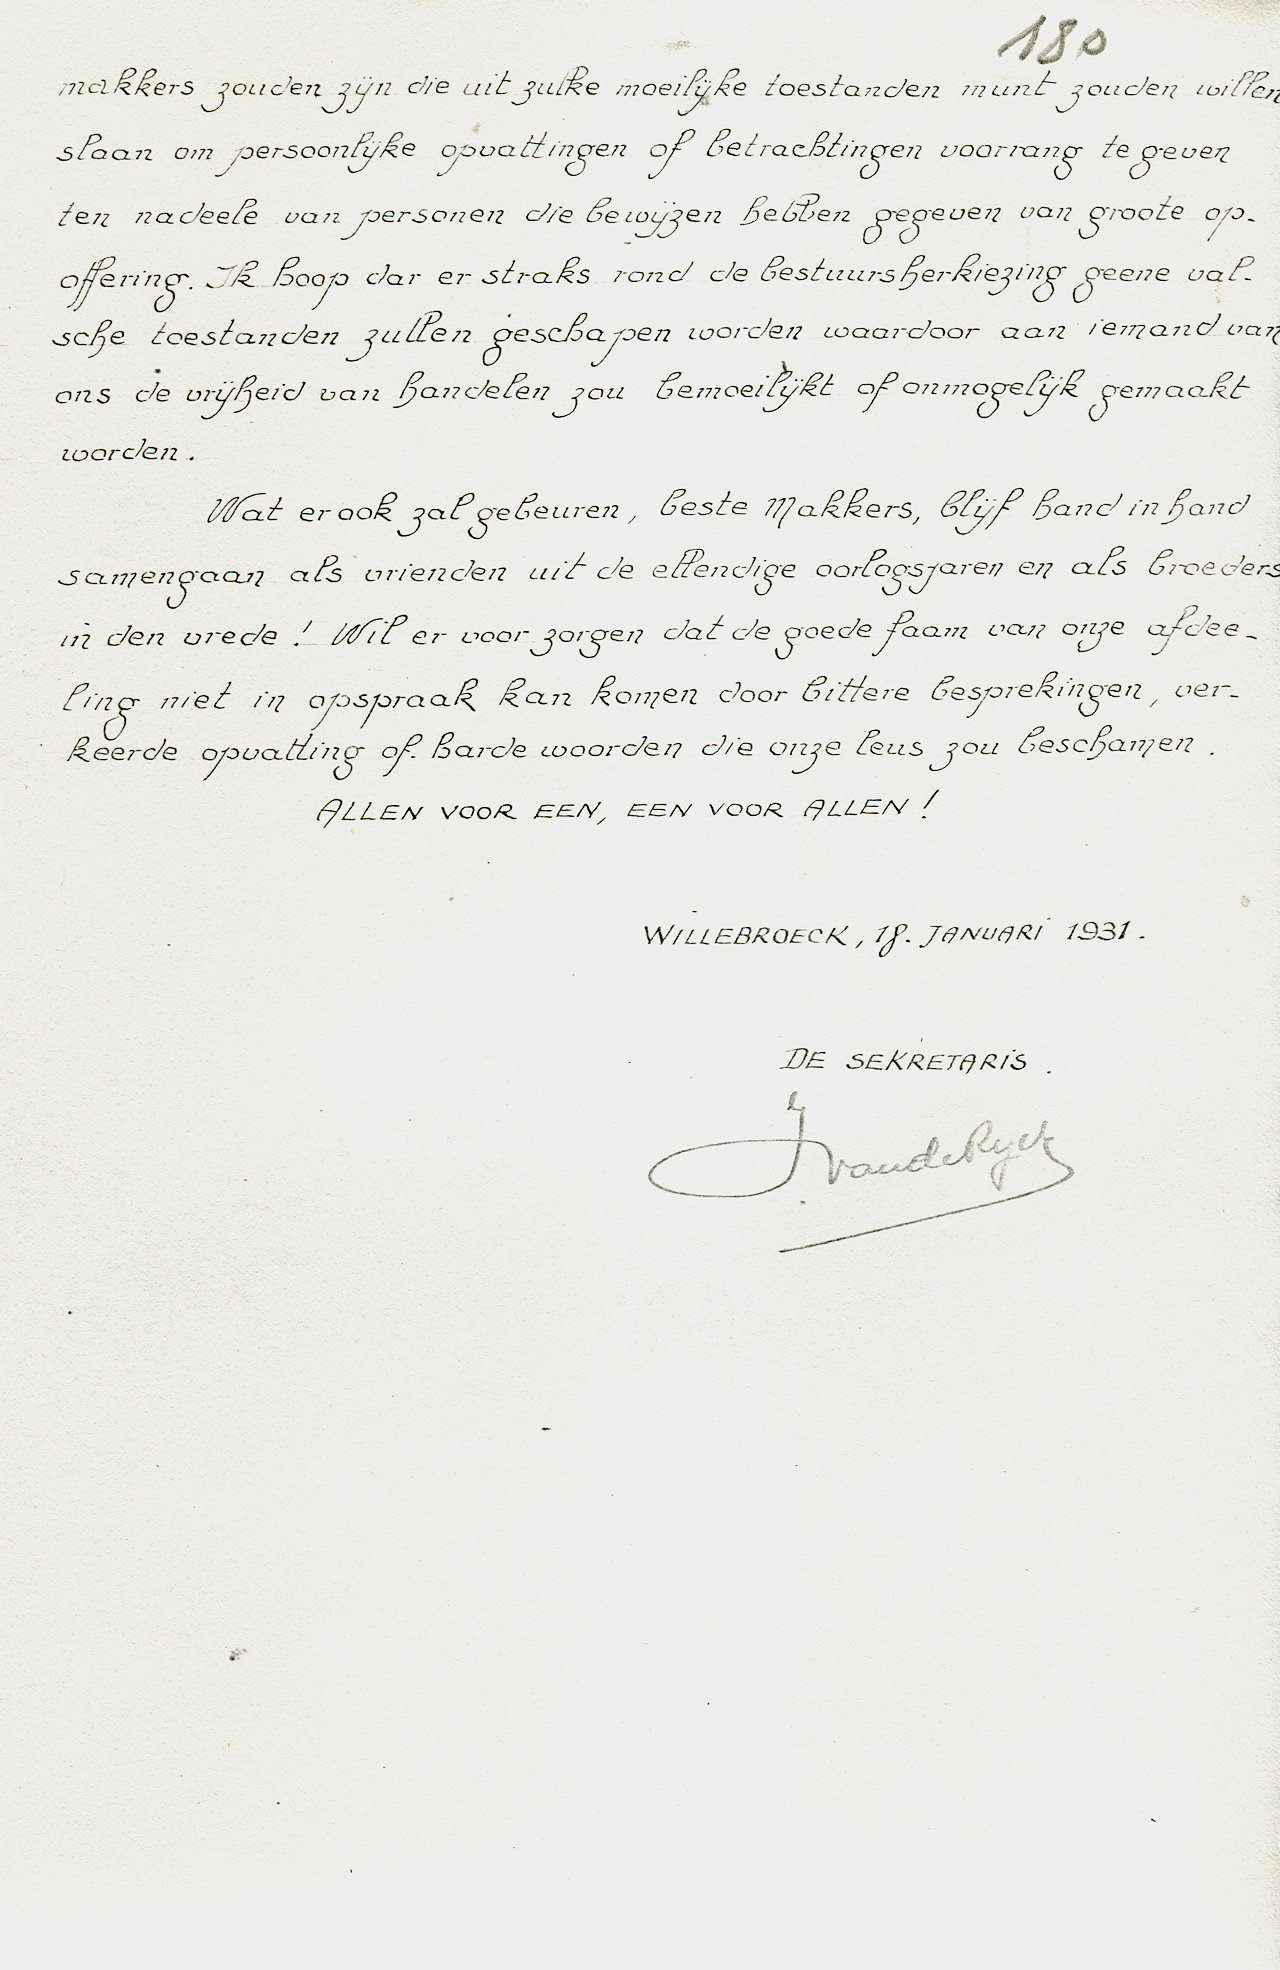 180
makkers zouden zijn die uit zulke moeilijke toestanden munt zouden willen
slaan om persoonlijke opvattingen of betrachtingen voorrang te geven
ten nadeele van personen die bewijzen hebben gegeven van groote op-
offering. Ik hoop dar er straks rond de bestuursherkiezing geene val-
sche toestanden zullen geschapen worden waardoor aan iemand van
ons de vrijheid van handelen zou bemoeilijkt of onmogelijk gemaakt
worden.
Wat er ook zal gebeuren, beste Makkers, blijf hand in hand
samengaan als vrienden uit de ellendige oorlogsjaren en als broeders
in den vrede! Wil er voor zorgen dat de goede faam van onze afdee-
ling niet in opspraak kan komen door bittere besprekingen, ver-
keerde opvatting of harde woorden die onze leus zou beschamen.
ALLEN VOOR EEN, EEN VOOR ALLEN!
WILLEBROECK, 18. JANUARI 1931.
DE SEKRETARIS.
J. Van de Ryck